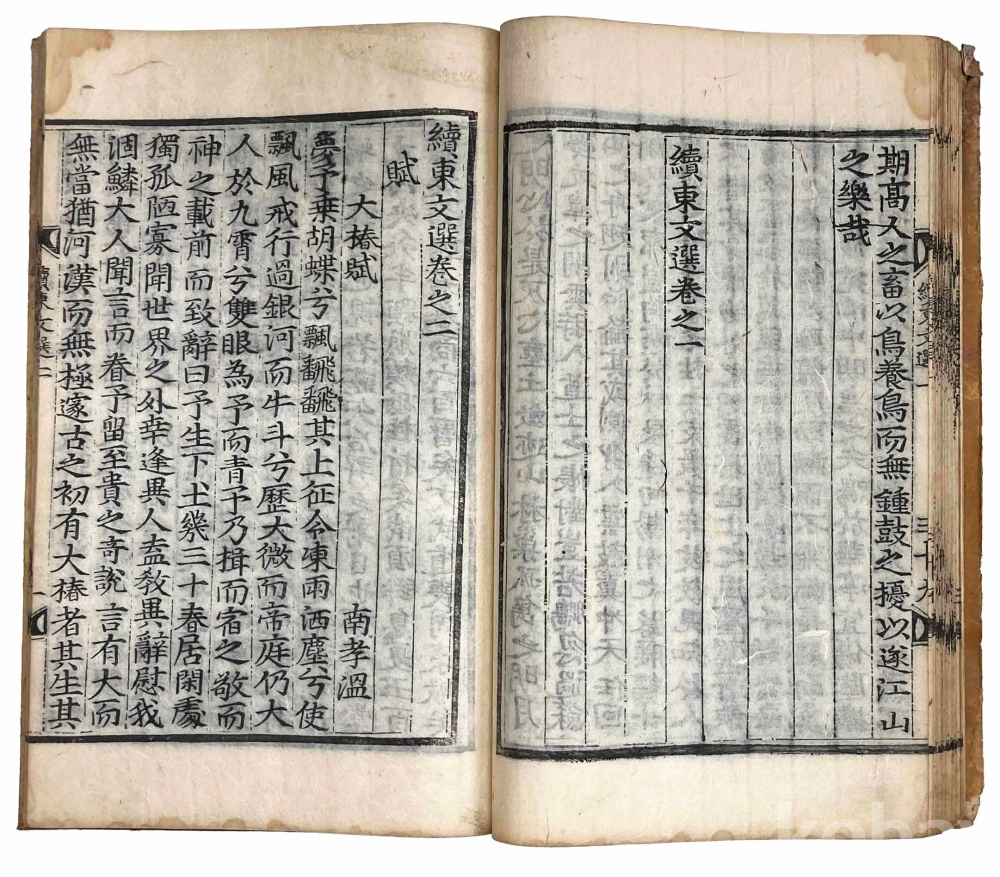 期高人之畜以鳥養鳥而無鍾鼓之擾以遂江山
之樂哉
續東文選卷之一
續東文選卷之二
賦
大椿賦
南孝溫
夢予乗胡蝶兮飄飜飜其上征令凍雨洒塵兮使
飄風戒行過銀河而牛斗兮歷大微而帝庭仍大
人於九霄兮雙眼為予而青予乃揖而宿之敬而
神之載前而致辭曰予生下土幾三十春居閑處
獨孤陋寡聞世界之外幸逢異人盍敎異辭慰我
涸鱗大人聞言而眷予留至貴之奇說言有大而
無當猶河漢而無極邃古之初有大椿者其生其
續東文選一
三十九
續東文選二
一